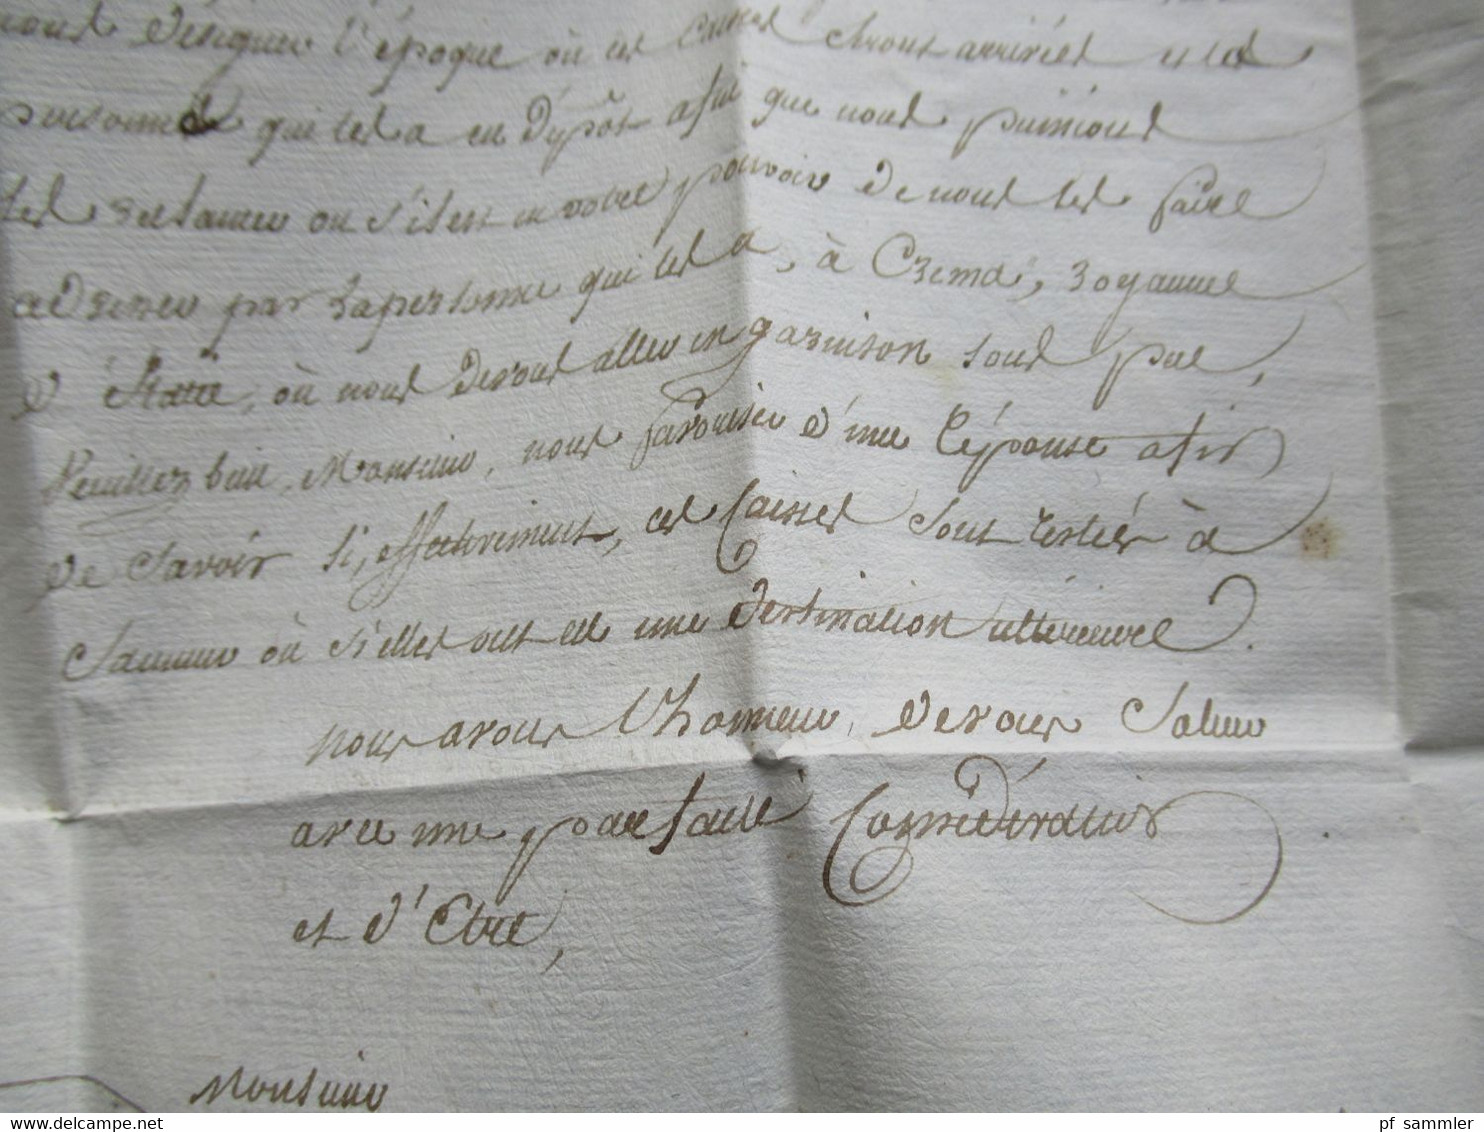 nous désigner l'époque où ces Caisses seront arrivées et la
personne qui les a en dépôt afin que nous puissions
les retirer ou s'il est en votre pouvoir de nous les faire
adresser par la personne qui les a, à Crema, royaume
d'italie, où nous devons aller en garnison sous peu,
Veuillez bien, Monsieur, nous favoriser d'une réponse afin
de savoir si, effectivement, ces Caisses sont restées à
Saumur où si elles ont eu une destination ultérieure.
nous avons l'honneur, de vous saluer
avec une parfaite Considération
et d'Etre,
Monsieur
www.delcampe.net
pf sammler